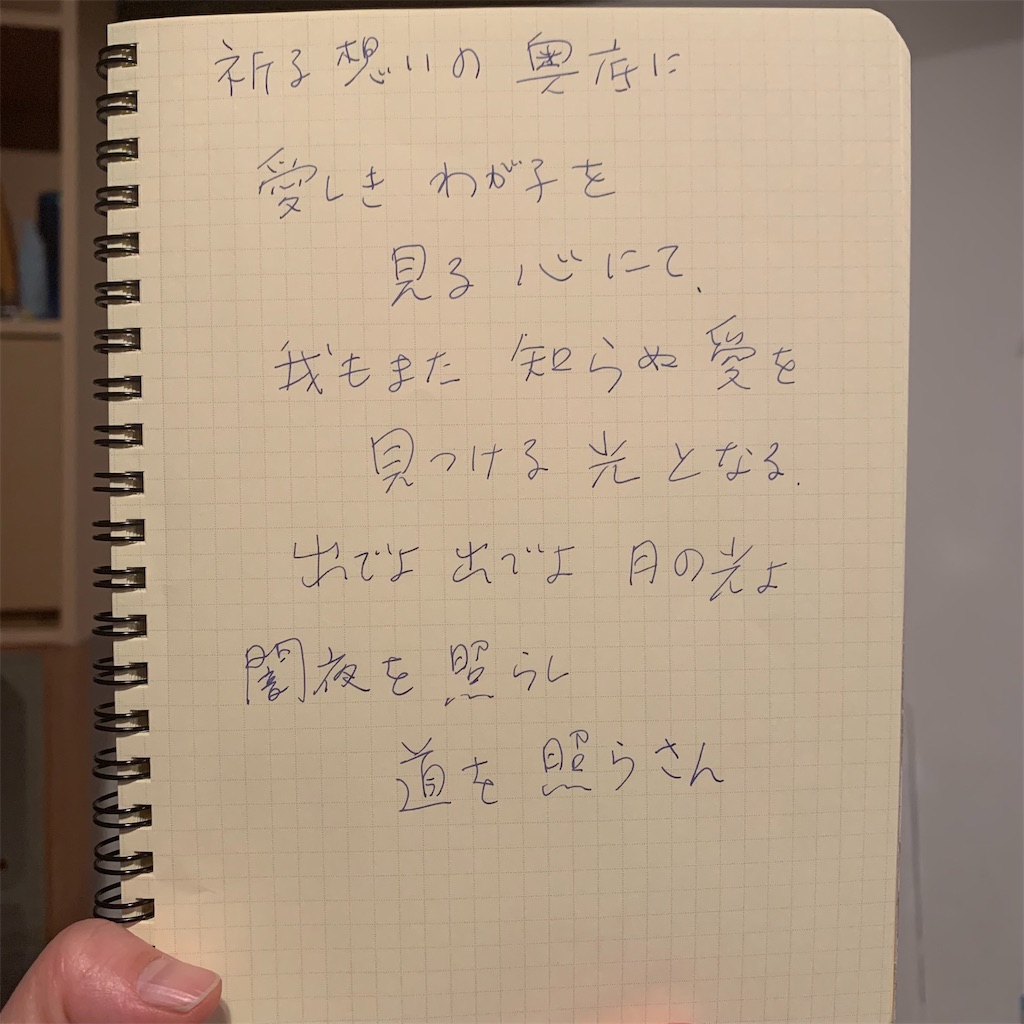 祈る想いの奥底に
愛しきわが子を
見る心にて、
我もまた知らぬ愛を
見つける光となる.
出でよ出でよ月の光よ
闇夜を照らし
道を照らさん